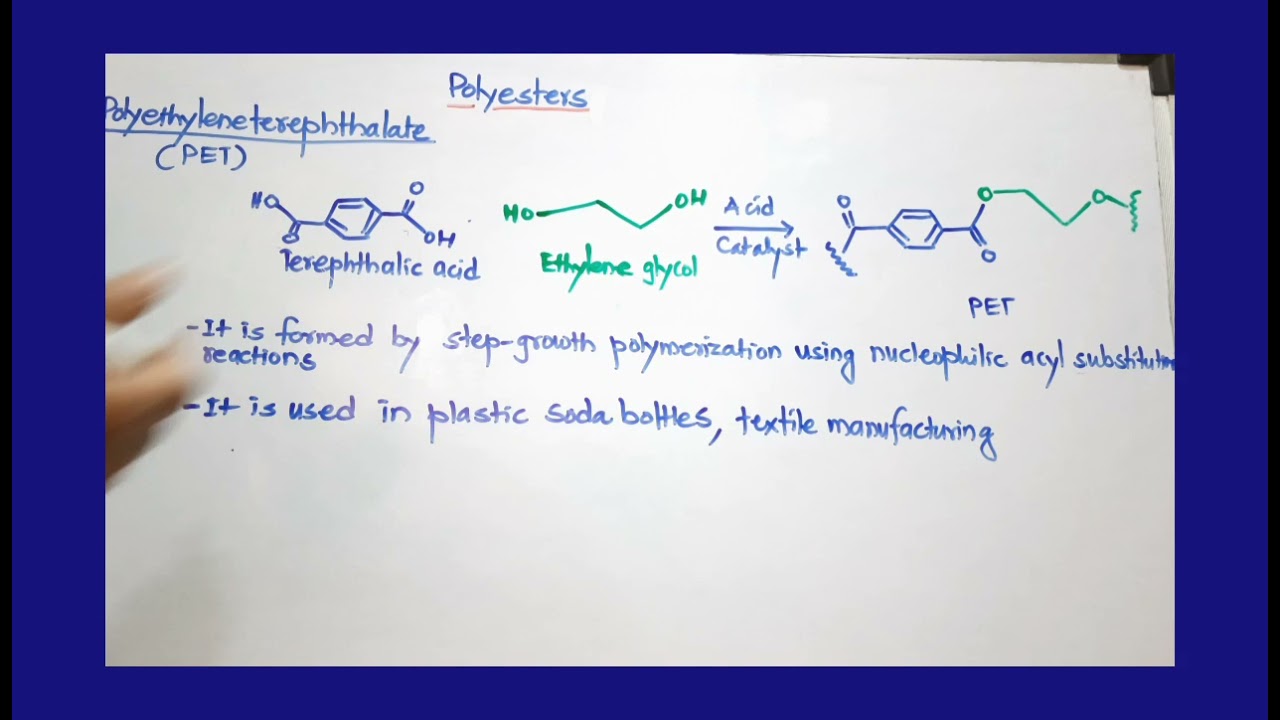 Polyesters
Polyethyleneterephthalate
(PET)
HO
O
O
OH
Terephthalic acid
HO
OH
Ethylene glycol
Acid
Catalyst
O
O
O
O
PET
-It is formed by step-growth polymerization using nucleophilic acyl substitution
reactions
-It is used in plastic soda bottles, textile manufacturing